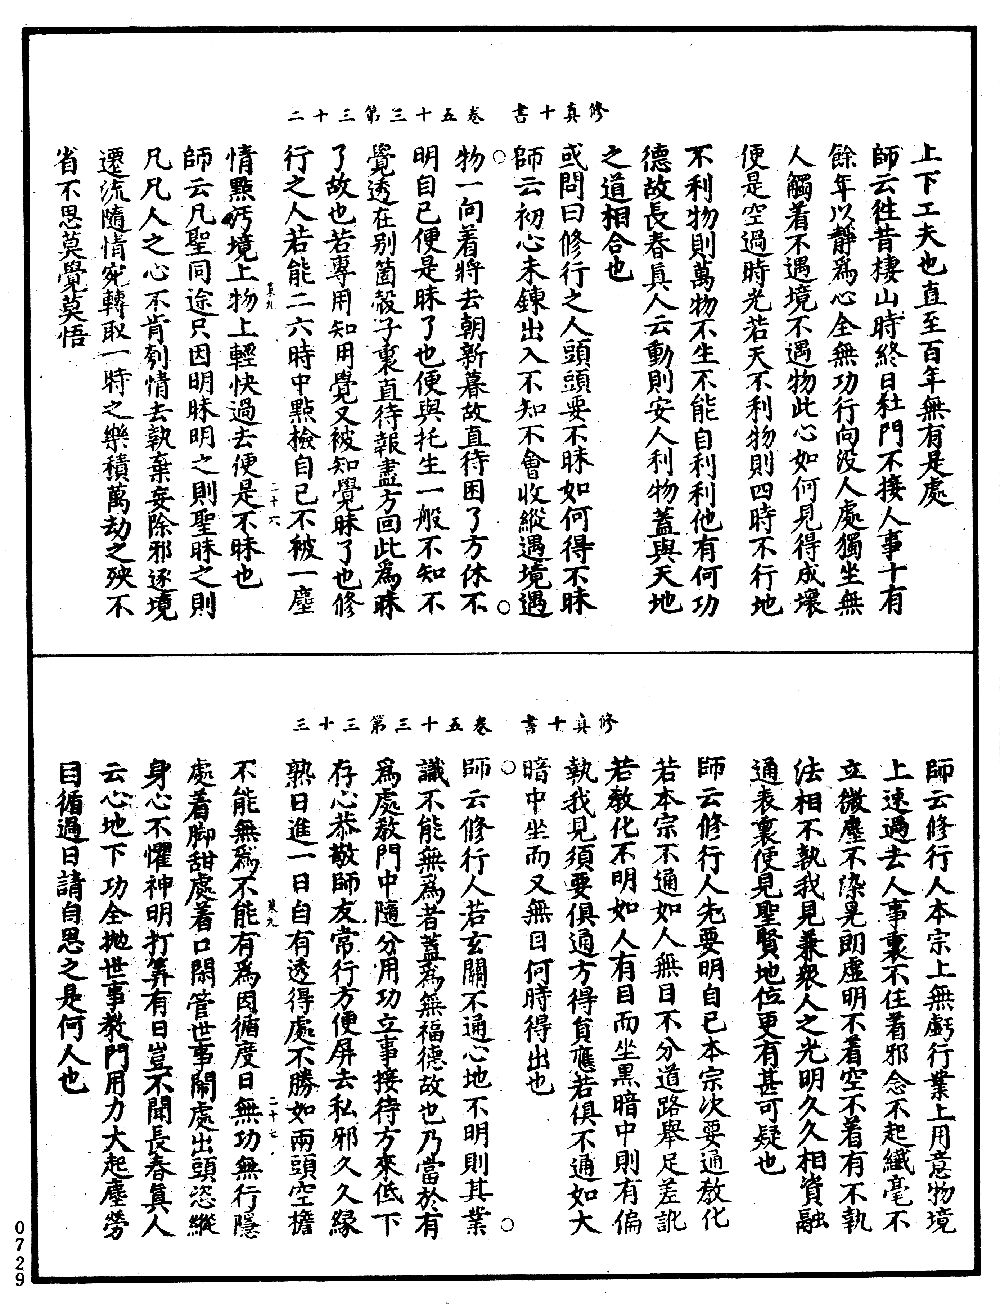 修真十書　卷五十三第三十二
上下工夫也直至百年無有是處
師云徃昔棲山時終日杜門不接人事十有
餘年以靜爲心全無功行向没人處獨坐無
人觸着不遇境不遇物此心如何見得成壞
便是空過時光若天不利物則四時不行地
不利物則萬物不生不能自利利他有何功
德故長春真人云動則安人利物蓋與天地
之道相合也
或問曰修行之人頭頭要不昧如何得不昧
師云初心未鍊出入不知不會收縱遇境遇
物一向着將去朝新暮故直待困了方休不
明自己便是昧了也便與托生一般不知不
覺透在别箇殼子裏直待報盡方回此爲昧
了故也若專用知用覺又被知覺昧了也修
行之人若能二六時中點檢自己不被一塵
菓九
二十六
情點汚境上物上輕快過去便是不昧也
師云凡聖同途只因明昧明之則聖昧之則
凡凡人之心不肯刳情去執棄妄除邪逐境
遷流隨情宛轉取一時之樂積萬劫之殃不
省不思莫覺莫悟
修真十書　卷五十三第三十三
師云修行人本宗上無虧行業上用意物境
上速過去人事裏不住着邪念不起纖毫不
立微塵不染晃朗虚明不着空不着有不執
法相不執我見兼衆人之光明久久相資融
通表裏便見聖賢地位更有甚可疑也
師云修行人先要明自己本宗次要通教化
若本宗不通如人無目不分道路舉足差訛
若教化不明如人有目而坐黑暗中則有偏
執我見須要俱通方得負應若俱不通如大
暗中坐而又無目何時得出也
師云修行人若玄關不通心地不明則其業
識不能無爲者蓋爲無福德故也乃當於有
爲處教門中隨分用功立事接待方來低下
存心恭敬師友常行方便屏去私邪久久緣
熟日進一日自有透得處不勝如兩頭空擔
菓九
二十七
不能無爲不能有爲因循度日無功無行隱
處着脚甜處着口閑管世事鬧處出頭恣縱
身心不懼神明打筭有日豈不聞長春真人
云心地下功全拋世事教門用力大起塵勞
目循過日請自思之是何人也
0729